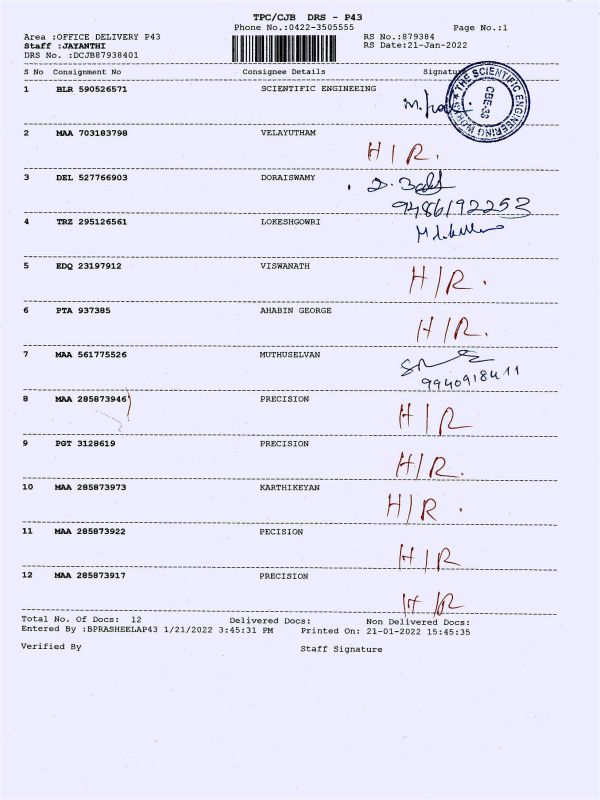 TPC/CJB DRS - P43
Phone No.:0422-3505555 Page No.:1
Area :OFFICE DELIVERY P43 RS No.:879384
Staff :JAYANTHI RS Date:21-Jan-2022
DRS No. :DCJB87938401
S No Consignment No Consignee Details Signatu
THE SCIENTIFIC ENGINEERING WORKS
CBE-38
1 BLR 590526571 SCIENTIFIC ENGINEEING
2 MAA 703183798 VELAYUTHAM H/R.
3 DEL 527766903 DORAISWAMY
9486192253
4 TRZ 295126561 LOKESHGOWRI
5 EDQ 23197912 VISWANATH H/R.
6 PTA 937385 AHABIN GEORGE H/R.
7 MAA 561775526 MUTHUSELVAN
9940918411
8 MAA 285873946 PRECISION H/R
9 PGT 3128619 PRECISION H/R.
10 MAA 285873973 KARTHIKEYAN H/R.
11 MAA 285873922 PECISION H/R
12 MAA 285873917 PRECISION H R
Total No. Of Docs: 12 Delivered Docs: Non Delivered Docs:
Entered By :BPRASHEELAP43 1/21/2022 3:45:31 PM Printed On: 21-01-2022 15:45:35
Verified By Staff Signature